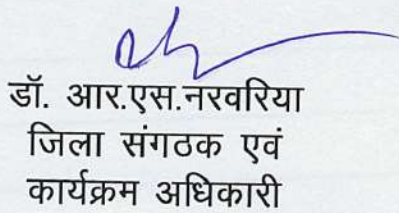 डॉ. आर.एस.नरवरिया
जिला संगठक एवं
कार्यक्रम अधिकारी